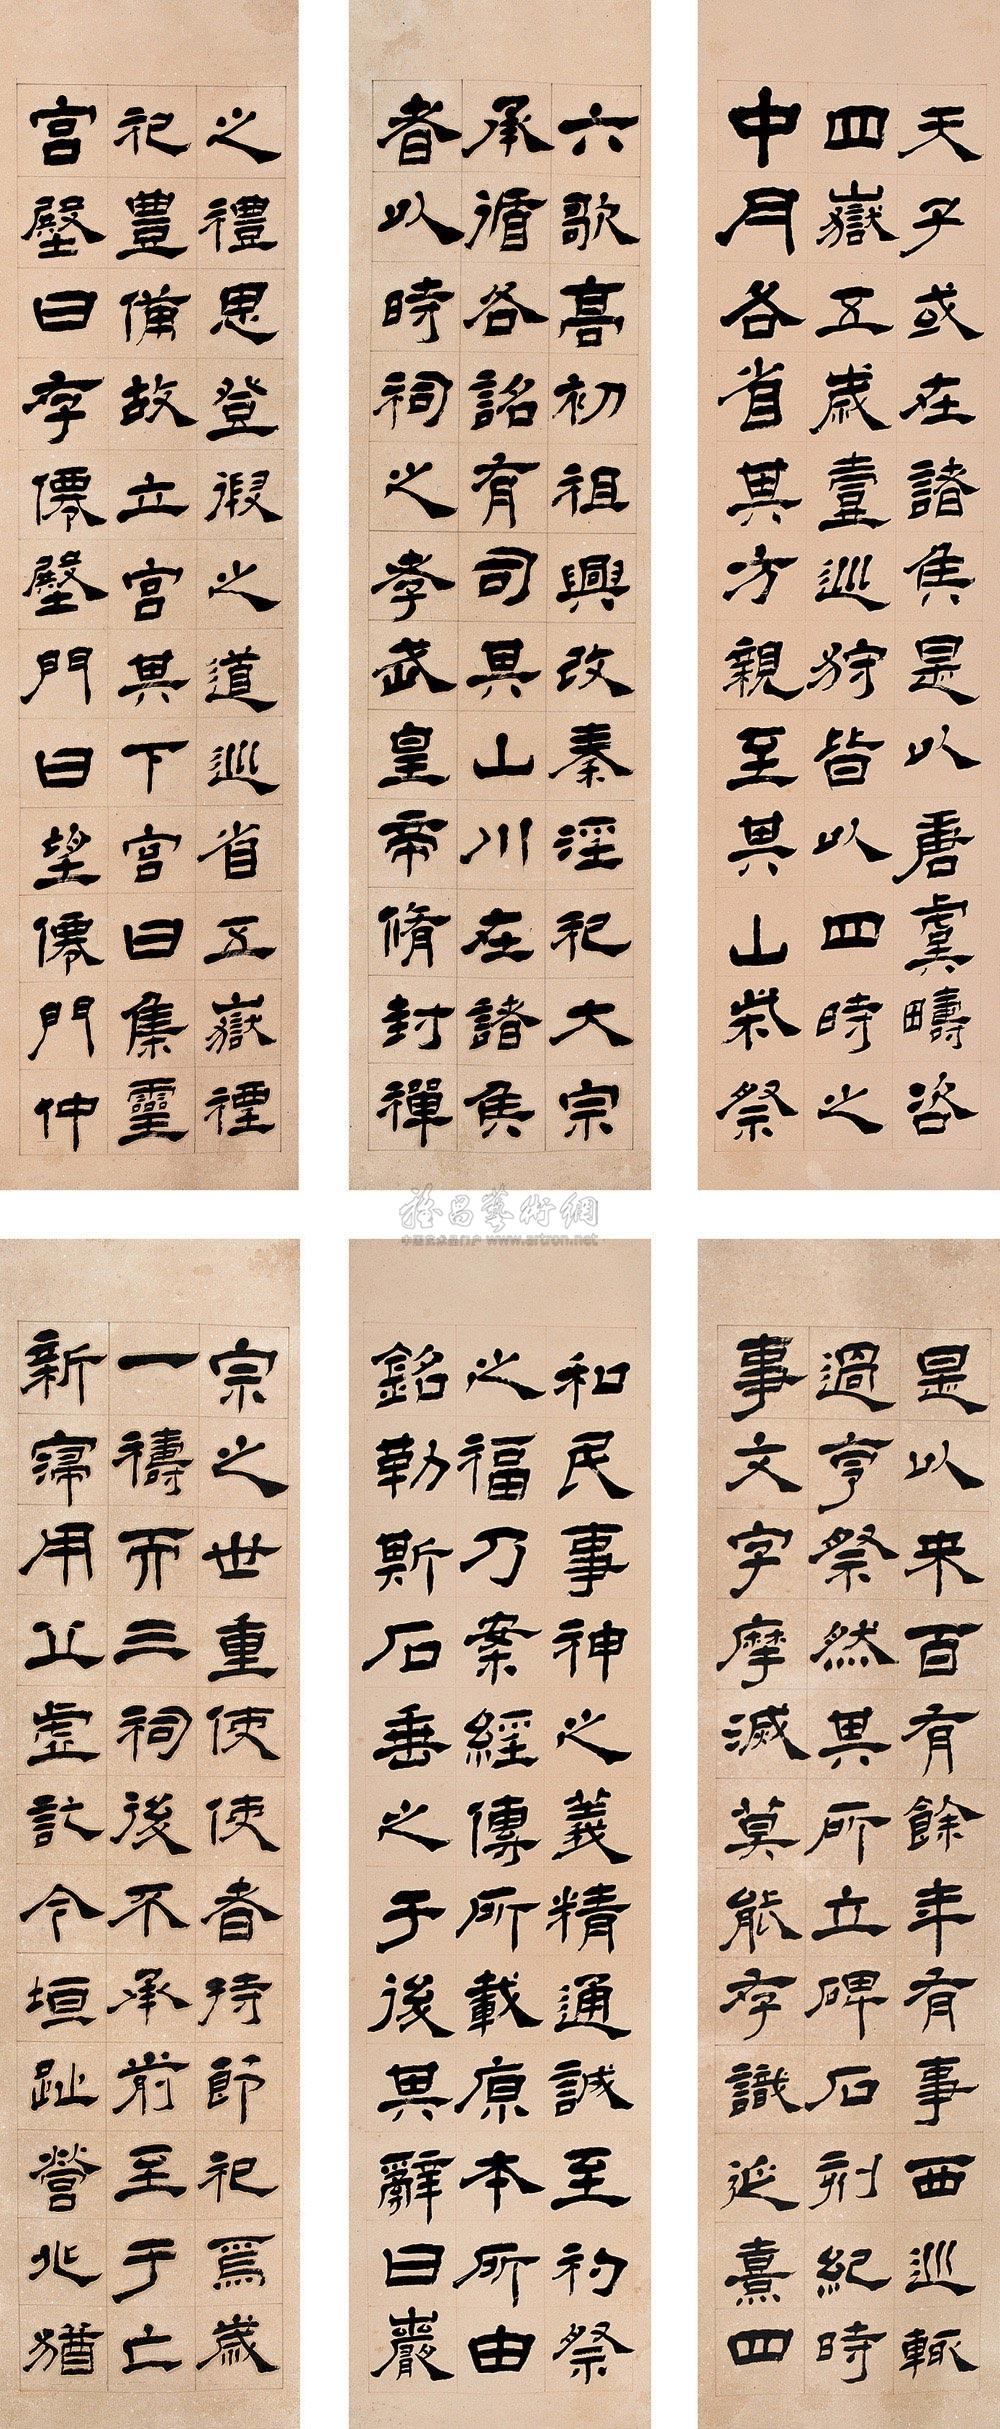 天子或在諸侯是以唐虞疇咨
四嶽五歲壹巡狩皆以四時之
中月各省其方親至其山柴祭
六歌高初祖興改秦淫祀大宗
承循各詔有司其山川在諸侯
者以時祠之孝武皇帝脩封禪
之禮思登假之道巡省五嶽禋
祀豊備故立宮其下宮曰集靈
宮壂曰存僊壂門曰望僊門仲
雅昌藝術網
www.artron.net
是以來百有餘年有事西巡輒
過亨祭然其所立碑石刻紀時
事文字摩滅莫能存識延熹四
和民事神之義精通誠至礿祭
之福乃案經傳所載原本所由
銘勒斯石垂之于後其辭曰巖
宗之世重使使者持節祀焉歲
一禱而三祠後不承前至于亡
新寖用丘虛訖今垣趾營兆猶